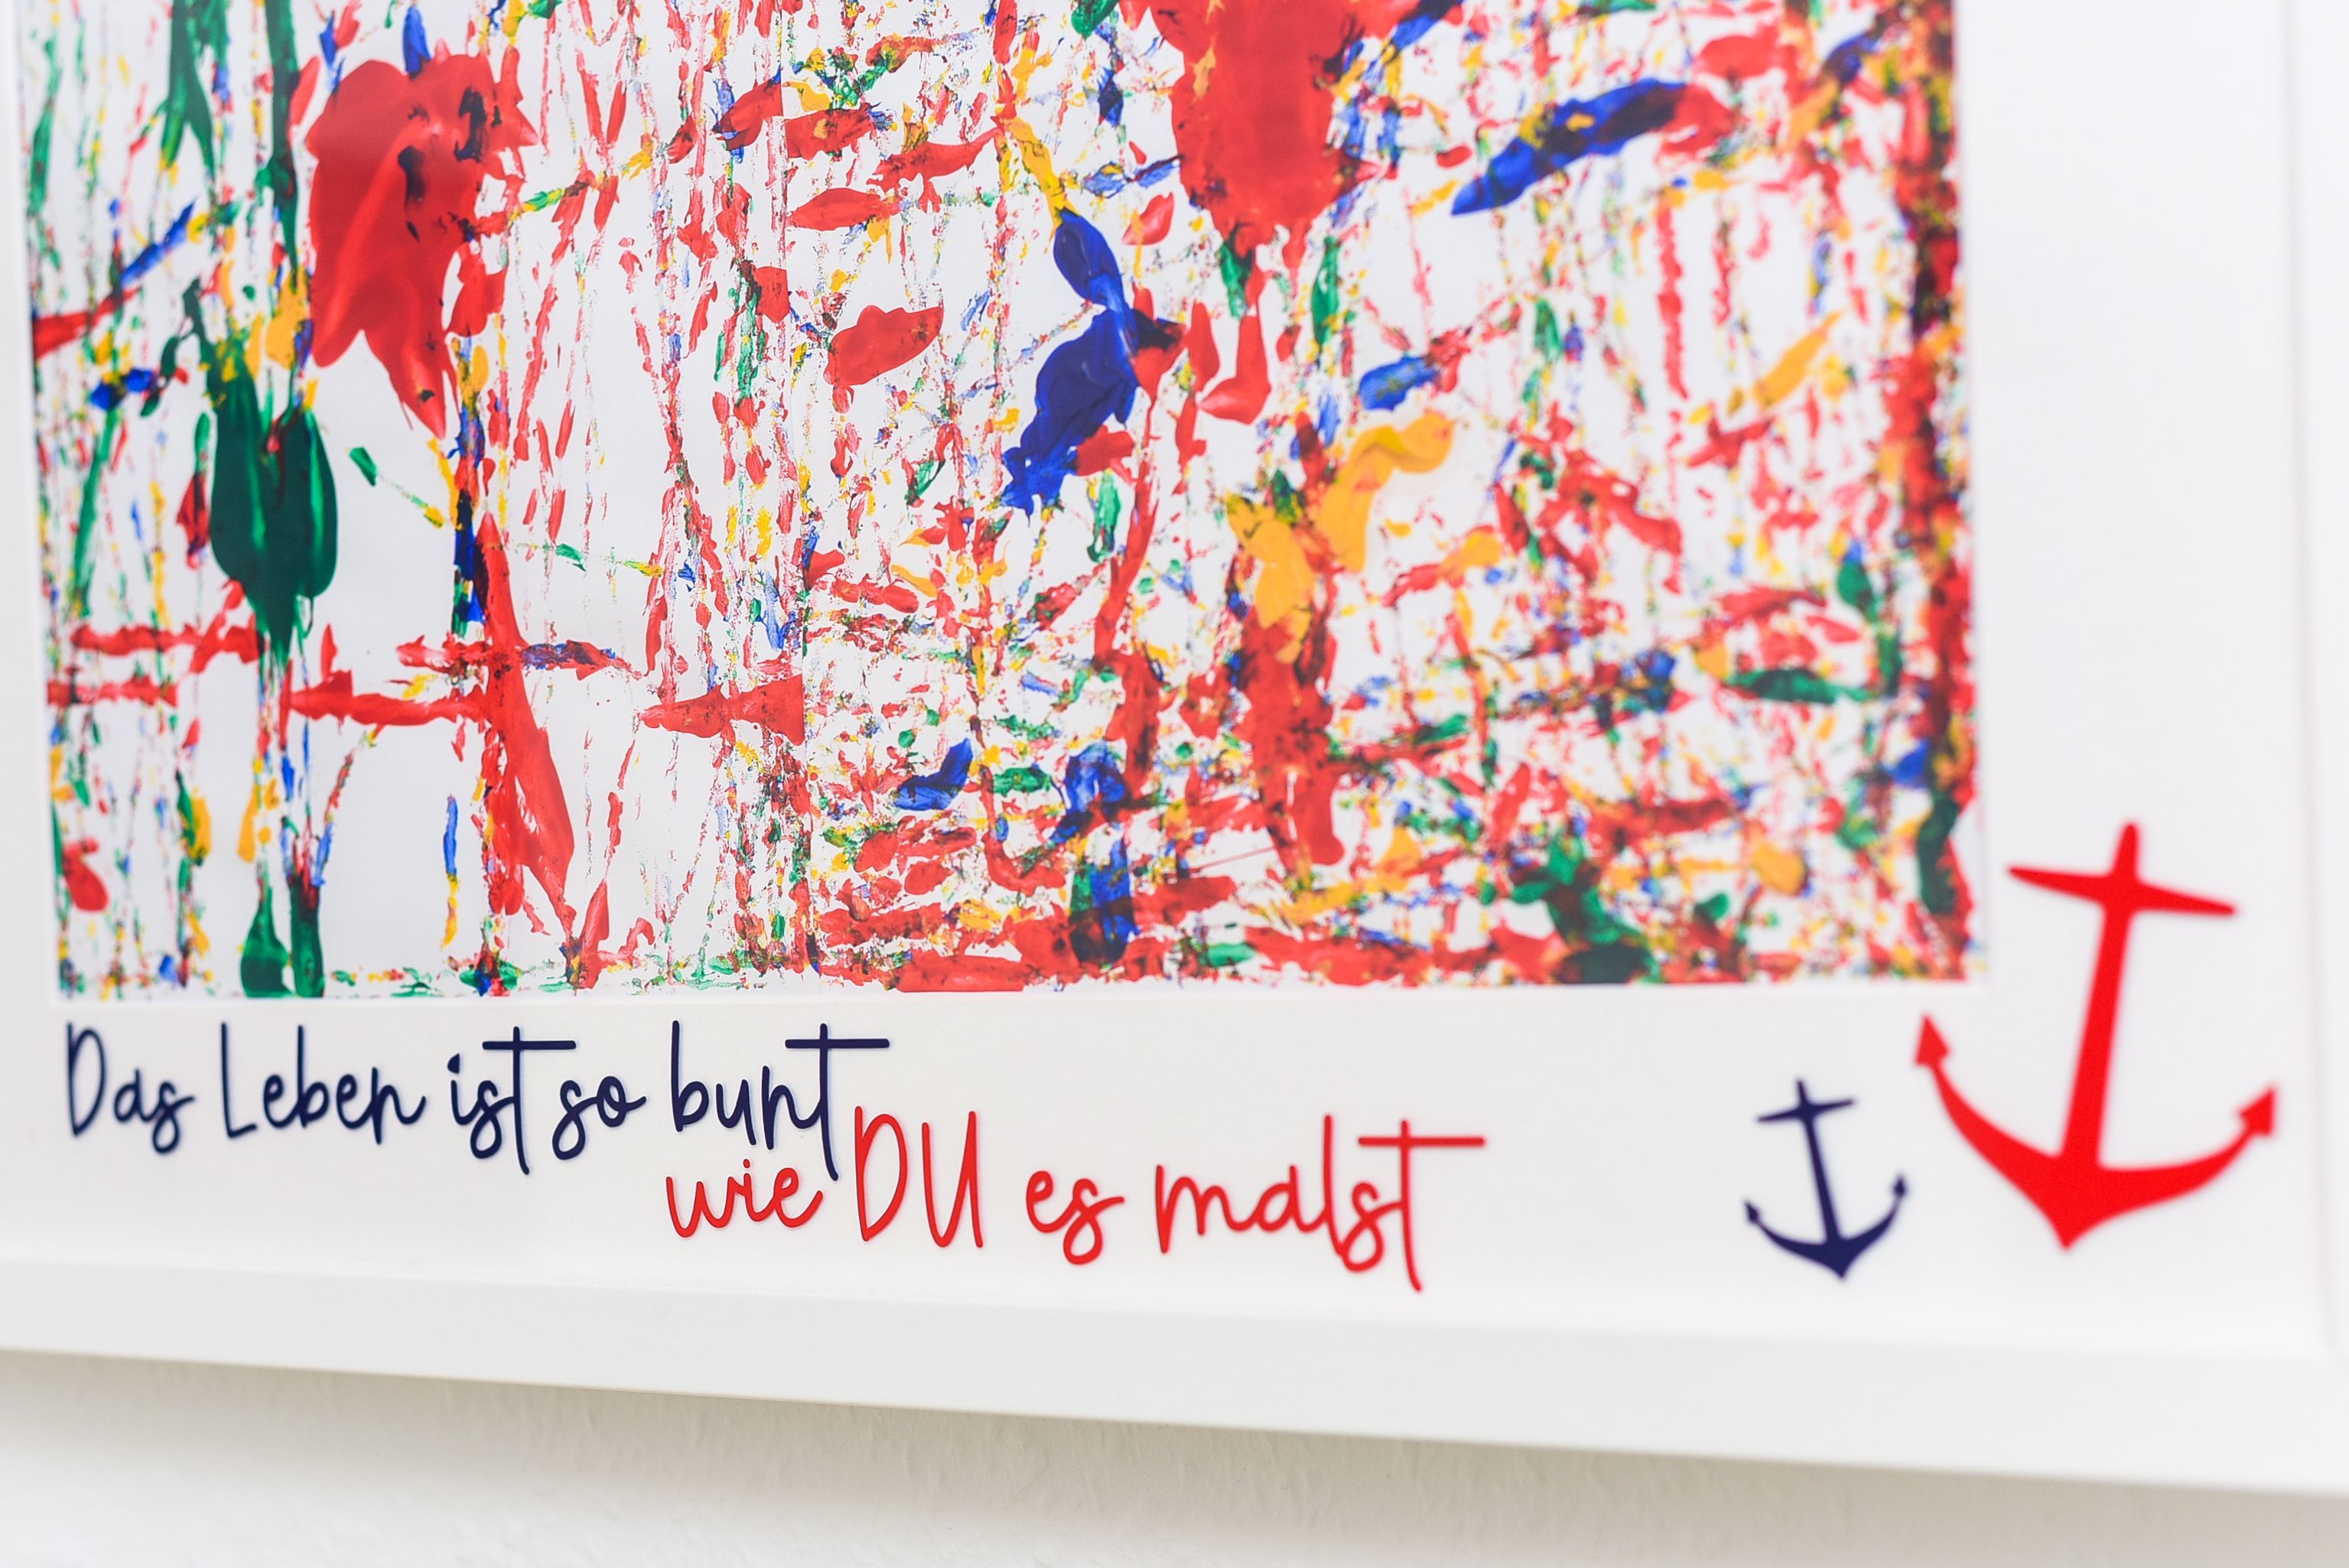 Das Leben ist so bunt
wie DU es malst